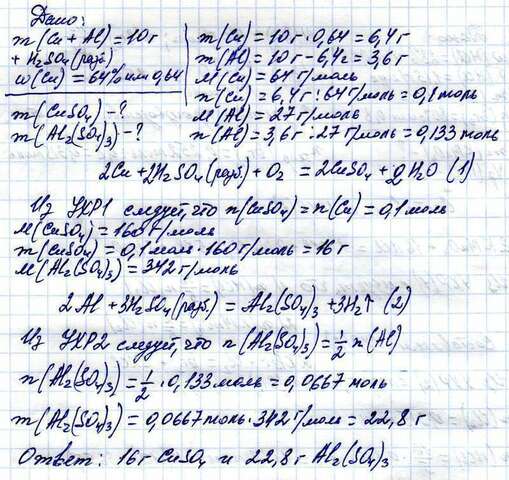 Дано:
m(Cu + Al) = 10г
+ H₂SO₄(разб.)
ω(Cu) = 64% или 0,64
m(CuSO₄) - ?
m(Al₂(SO₄)₃) - ?
m(Cu) = 10г · 0,64 = 6,4г
m(Al) = 10г - 6,4г = 3,6г
M(Cu) = 64 г/моль
n(Cu) = 6,4г : 64г/моль = 0,1 моль
M(Al) = 27 г/моль
n(Al) = 3,6г : 27 г/моль = 0,133 моль
2Cu + 2H₂SO₄(разб.) + O₂ = 2CuSO₄ + 2H₂O (1)
Из УХР1 следует, что n(CuSO₄) = n(Cu) = 0,1 моль
M(CuSO₄) = 160 г/моль
m(CuSO₄) = 0,1 моль · 160 г/моль = 16 г
M(Al₂(SO₄)₃) = 342 г/моль
2Al + 3H₂SO₄(разб.) = Al₂(SO₄)₃ + 3H₂↑ (2)
Из УХР2 следует, что n(Al₂(SO₄)₃) = 1/2 n(Al)
n(Al₂(SO₄)₃) = 1/2 · 0,133 моль = 0,0667 моль
m(Al₂(SO₄)₃) = 0,0667 моль · 342 г/моль = 22,8 г
Ответ: 16 г CuSO₄ и 22,8 г Al₂(SO₄)₃